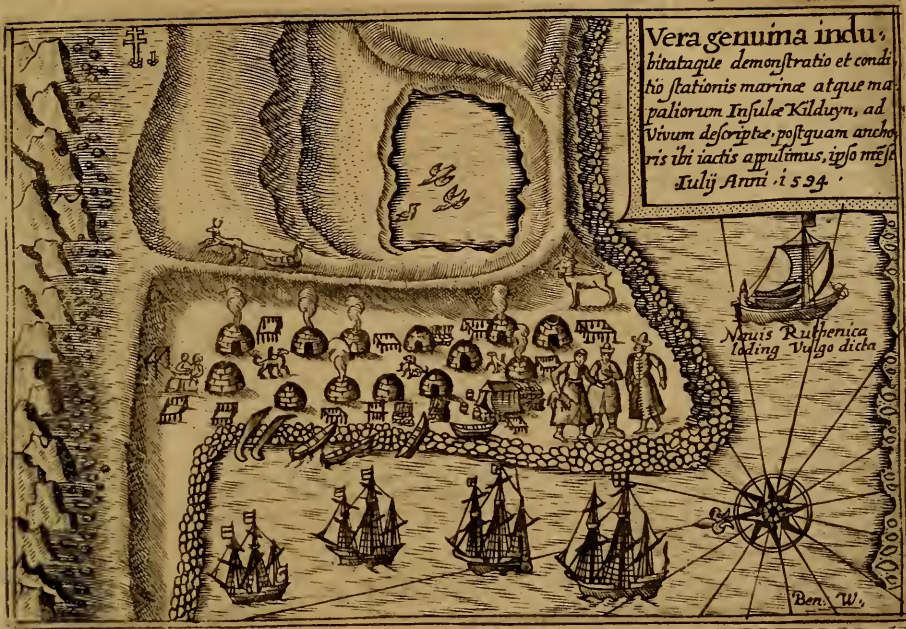 Vera genuina indu:
bitataque demonſtratio et condi
tio ſtationis marinæ atque ma
paliorum Inſulæ Kilduyn, ad
Vivum deſcriptæ, poſtquam ancho
ris ibi iactis appulimus, ipſo mẽſe
Iulij Anni · 1594 ·
Navis Ruthenica
loding Vulgo dicta
Ben: W:,